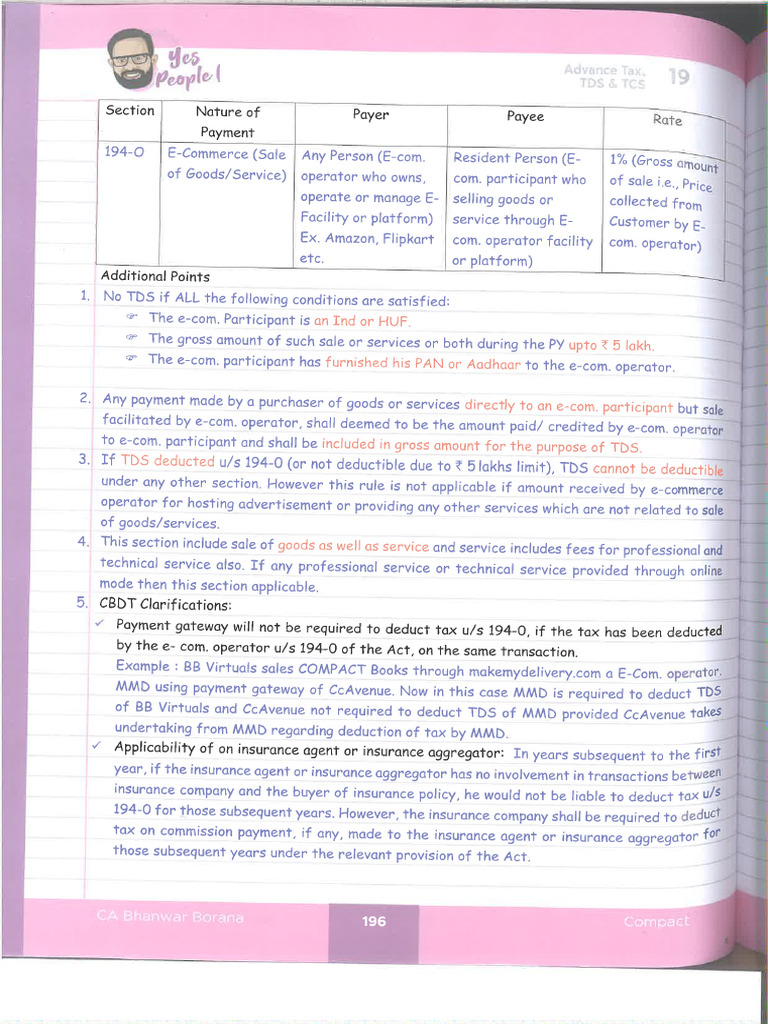 Yes
People!
Advance Tax,
TDS & TCS
19
Section
Nature of
Payment
Payer
Payee
Rate
194-O
E-Commerce (Sale
of Goods/Service)
Any Person (E-com.
operator who owns,
operate or manage E-
Facility or platform)
Ex. Amazon, Flipkart
etc.
Resident Person (E-
com. participant who
selling goods or
service through E-
com. operator facility
or platform)
1% (Gross amount
of sale i.e., Price
collected from
Customer by E-
com. operator)
Additional Points
1. No TDS if ALL the following conditions are satisfied:
☞ The e-com. Participant is an Ind or HUF.
☞ The gross amount of such sale or services or both during the PY upto ₹ 5 lakh.
☞ The e-com. participant has furnished his PAN or Aadhaar to the e-com. operator.
2. Any payment made by a purchaser of goods or services directly to an e-com. participant but sale
facilitated by e-com. operator, shall deemed to be the amount paid/ credited by e-com. operator
to e-com. participant and shall be included in gross amount for the purpose of TDS.
3. If TDS deducted u/s 194-O (or not deductible due to ₹ 5 lakhs limit), TDS cannot be deductible
under any other section. However this rule is not applicable if amount received by e-commerce
operator for hosting advertisement or providing any other services which are not related to sale
of goods/services.
4. This section include sale of goods as well as service and service includes fees for professional and
technical service also. If any professional service or technical service provided through online
mode then this section applicable.
5. CBDT Clarifications:
✓ Payment gateway will not be required to deduct tax u/s 194-O, if the tax has been deducted
by the e- com. operator u/s 194-O of the Act, on the same transaction.
Example : BB Virtuals sales COMPACT Books through makemydelivery.com a E-Com. operator.
MMD using payment gateway of CcAvenue. Now in this case MMD is required to deduct TDS
of BB Virtuals and CcAvenue not required to deduct TDS of MMD provided CcAvenue takes
undertaking from MMD regarding deduction of tax by MMD.
✓ Applicability of on insurance agent or insurance aggregator: In years subsequent to the first
year, if the insurance agent or insurance aggregator has no involvement in transactions between
insurance company and the buyer of insurance policy, he would not be liable to deduct tax u/s
194-O for those subsequent years. However, the insurance company shall be required to deduct
tax on commission payment, if any, made to the insurance agent or insurance aggregator for
those subsequent years under the relevant provision of the Act.
CA Bhanwar Borana
196
Compact